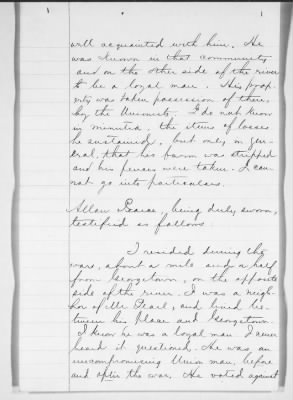 well acquainted with him. He
was known in that community
and on the other side of the river
to be a loyal man. His prop-
erty was taken possession of there,
by the Unionists. I do not know
in minutia the items of losses
he sustained, but only, in gen-
eral, that his farm was stripped
and his fences were taken. I can-
not go into particulars.
Allan Pearce being duly sworn,
testified as follows
I resided during the
war, about a mile and a half
from Georgetown, on the opposite
side of the river. I was a neigh-
bor of Mr. and lived be-
tween his place and Georgetown.
I know he was a loyal man. I never
heard it questioned. He was an
uncompromising Union man, before
and after the war. He voted against